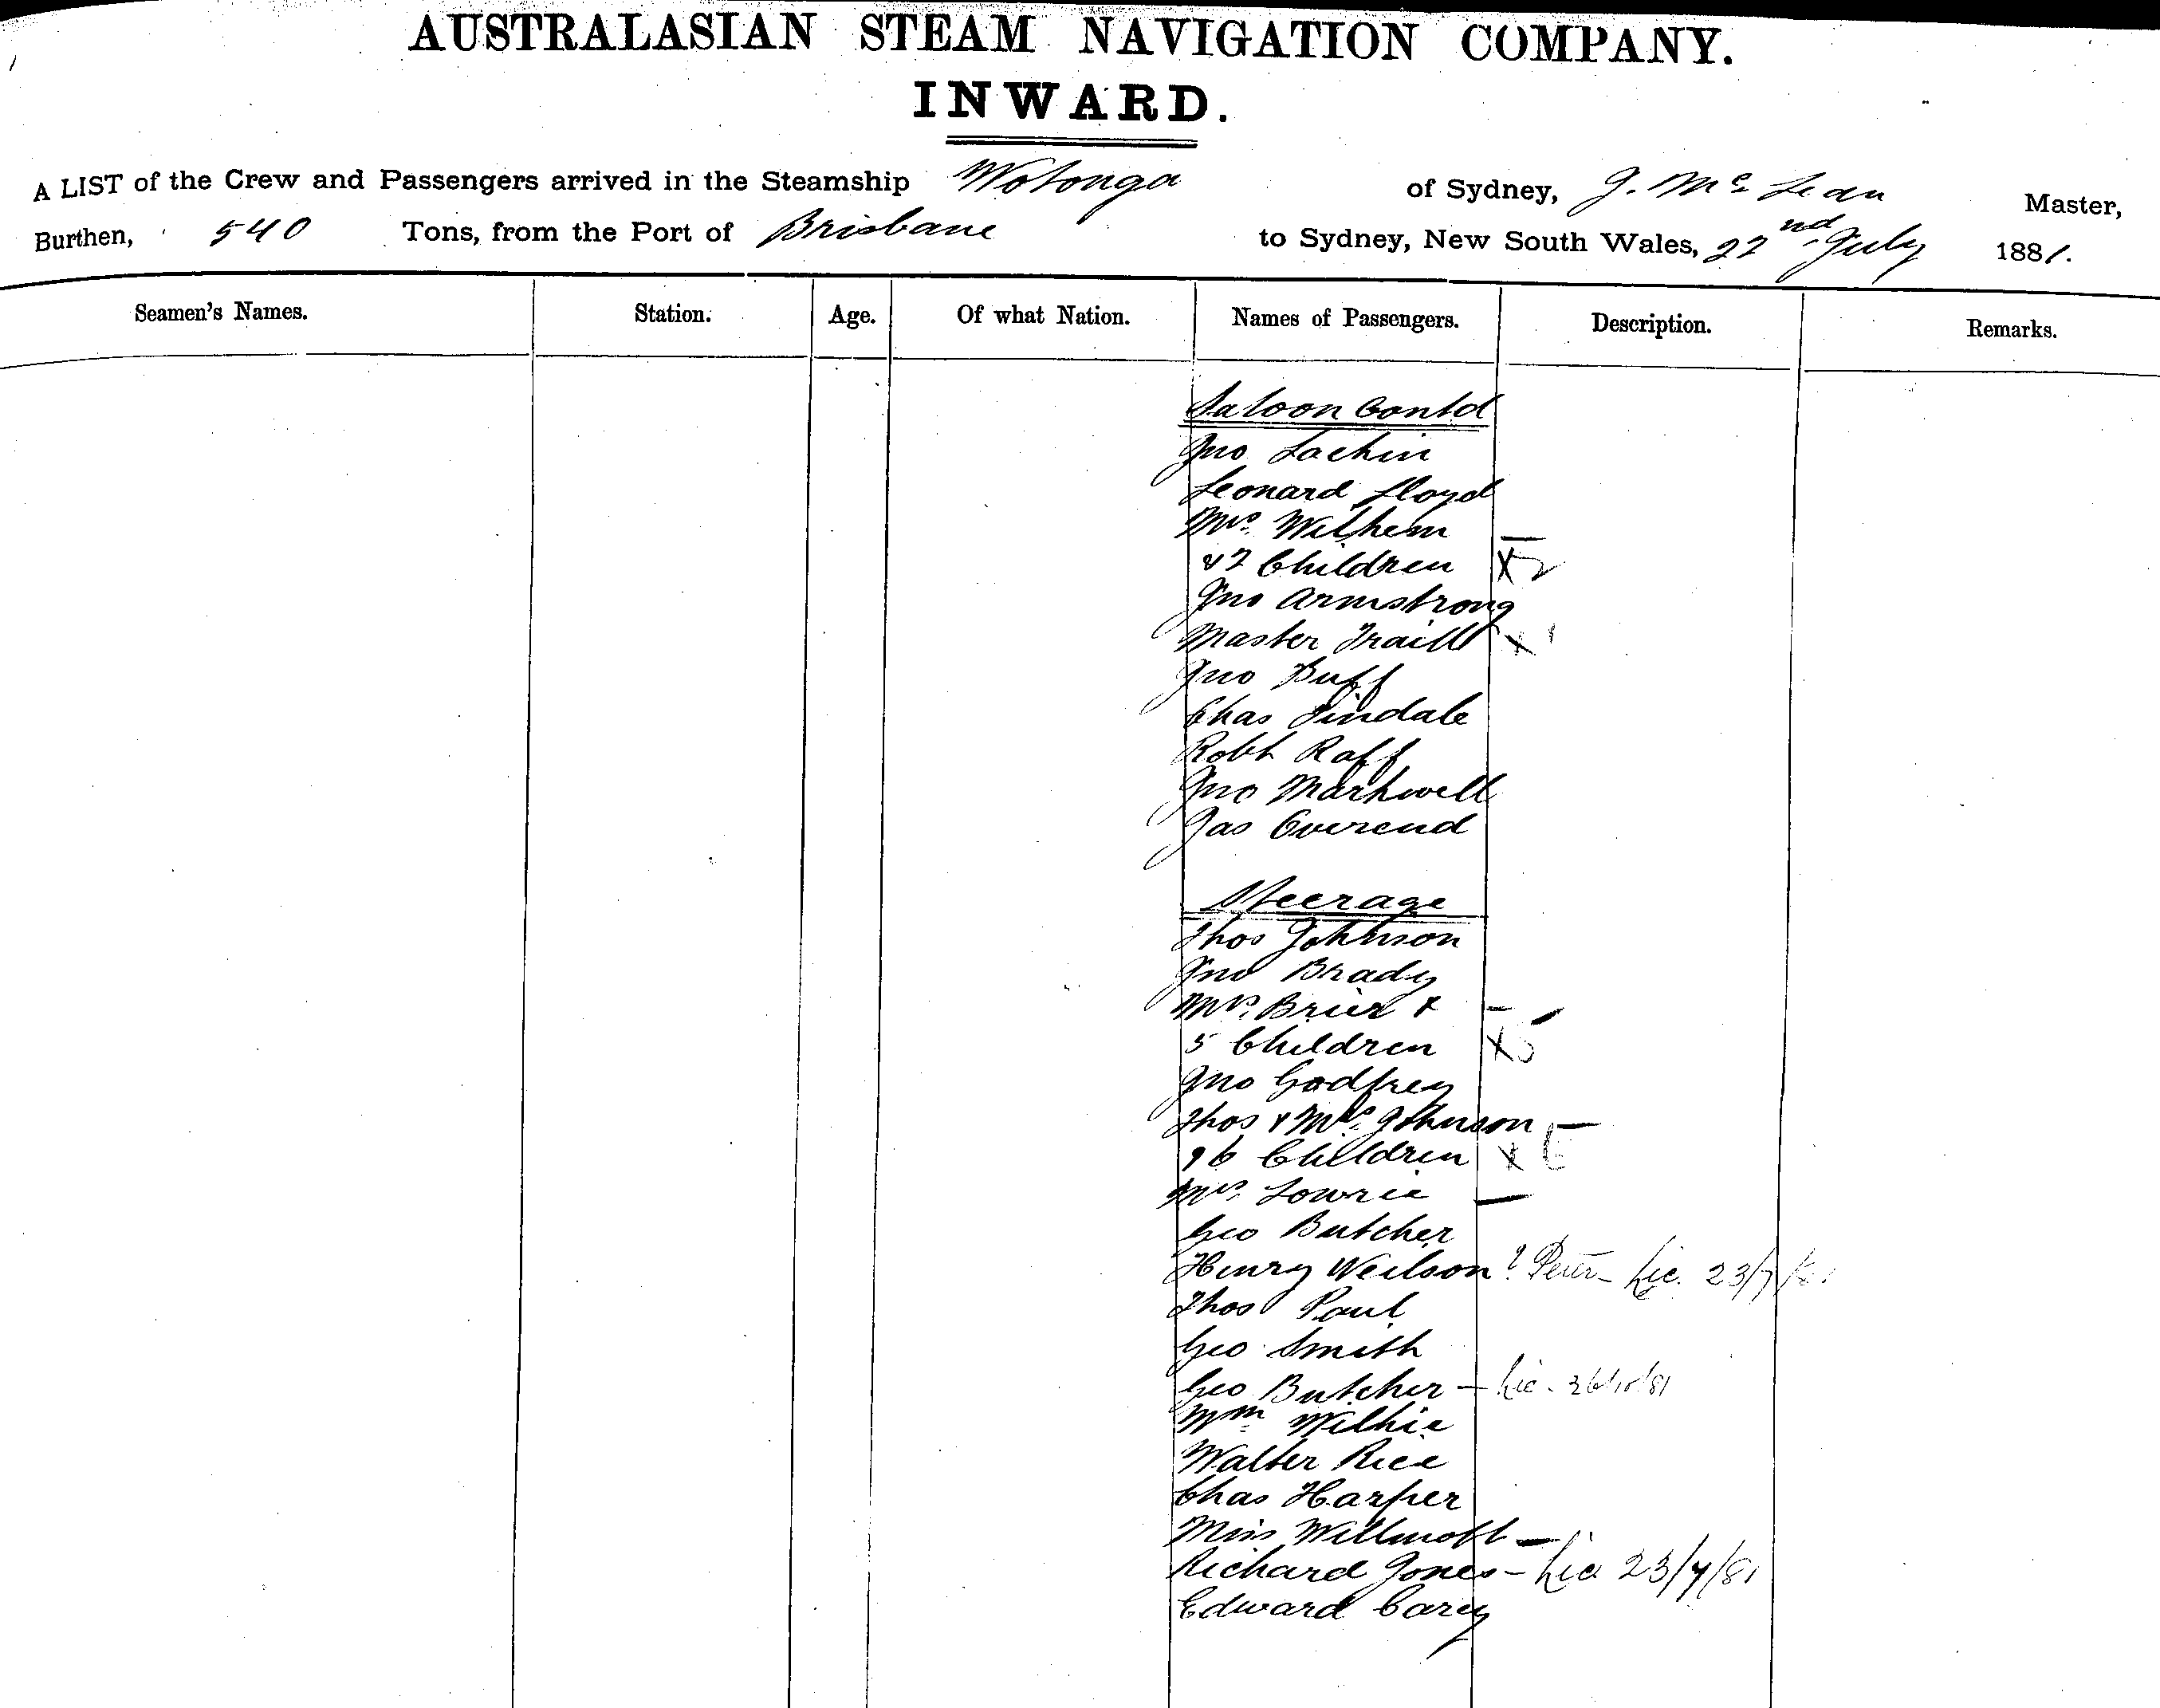 AUSTRALASIAN STEAM NAVIGATION COMPANY.
INWARD.
A LIST of the Crew and Passengers arrived in the Steamship Wotonga of Sydney, J. McLean Master,
Burthen, 540 Tons, from the Port of Brisbane to Sydney, New South Wales, 22nd July 1881.
Seamen's Names. Station. Age. Of what Nation. Names of Passengers. Description. Remarks.
Saloon Contd
Jno Lachin
Leonard Lloyd
Mrs. Wilhem
& 2 Children X 2
Jno Armstrong
Master Traill X 1
Jno Buff
Chas Tindale
Robt Raff
Jno Markwell
Jas Overend
Steerage
Thos Johnson
Jno Brady
Mrs. Brier & —
5 Children X 5
Jno Godfrey
Thos & Mrs. Johnson —
& 6 Children X 6
Mrs. Lowrie —
Geo Butcher
Henry Weilson ? Peter - Lic. 23/7/81
Thos Paul
Geo Smith
Geo Butcher — Lic.
Wm Wilkie
Walter Rice
Chas Harper
Miss Willmott —
Richard Jones - Lic 23/7/81
Edward Carey